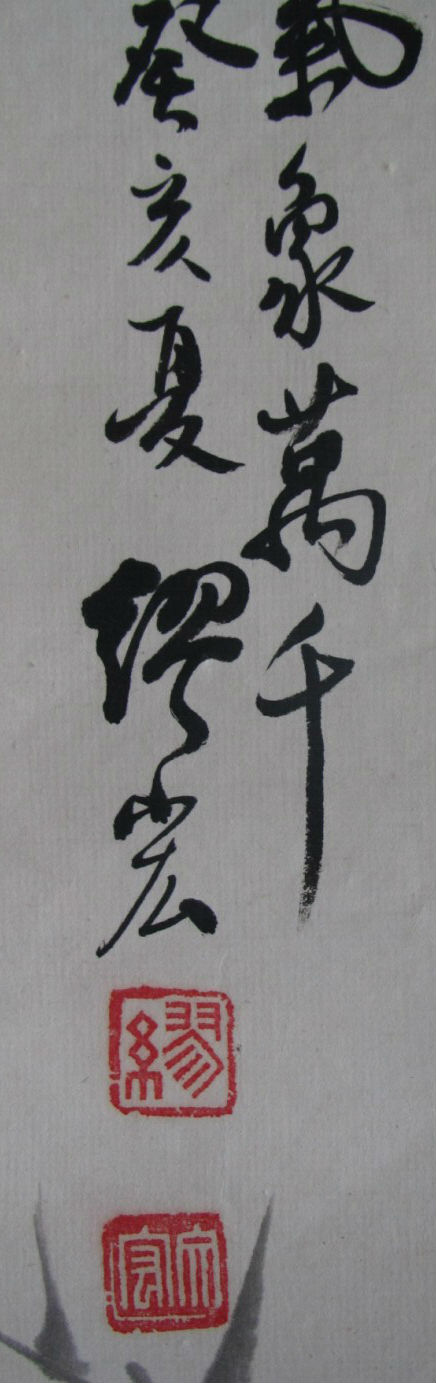 氣象萬千
癸亥夏 繆宏
繆